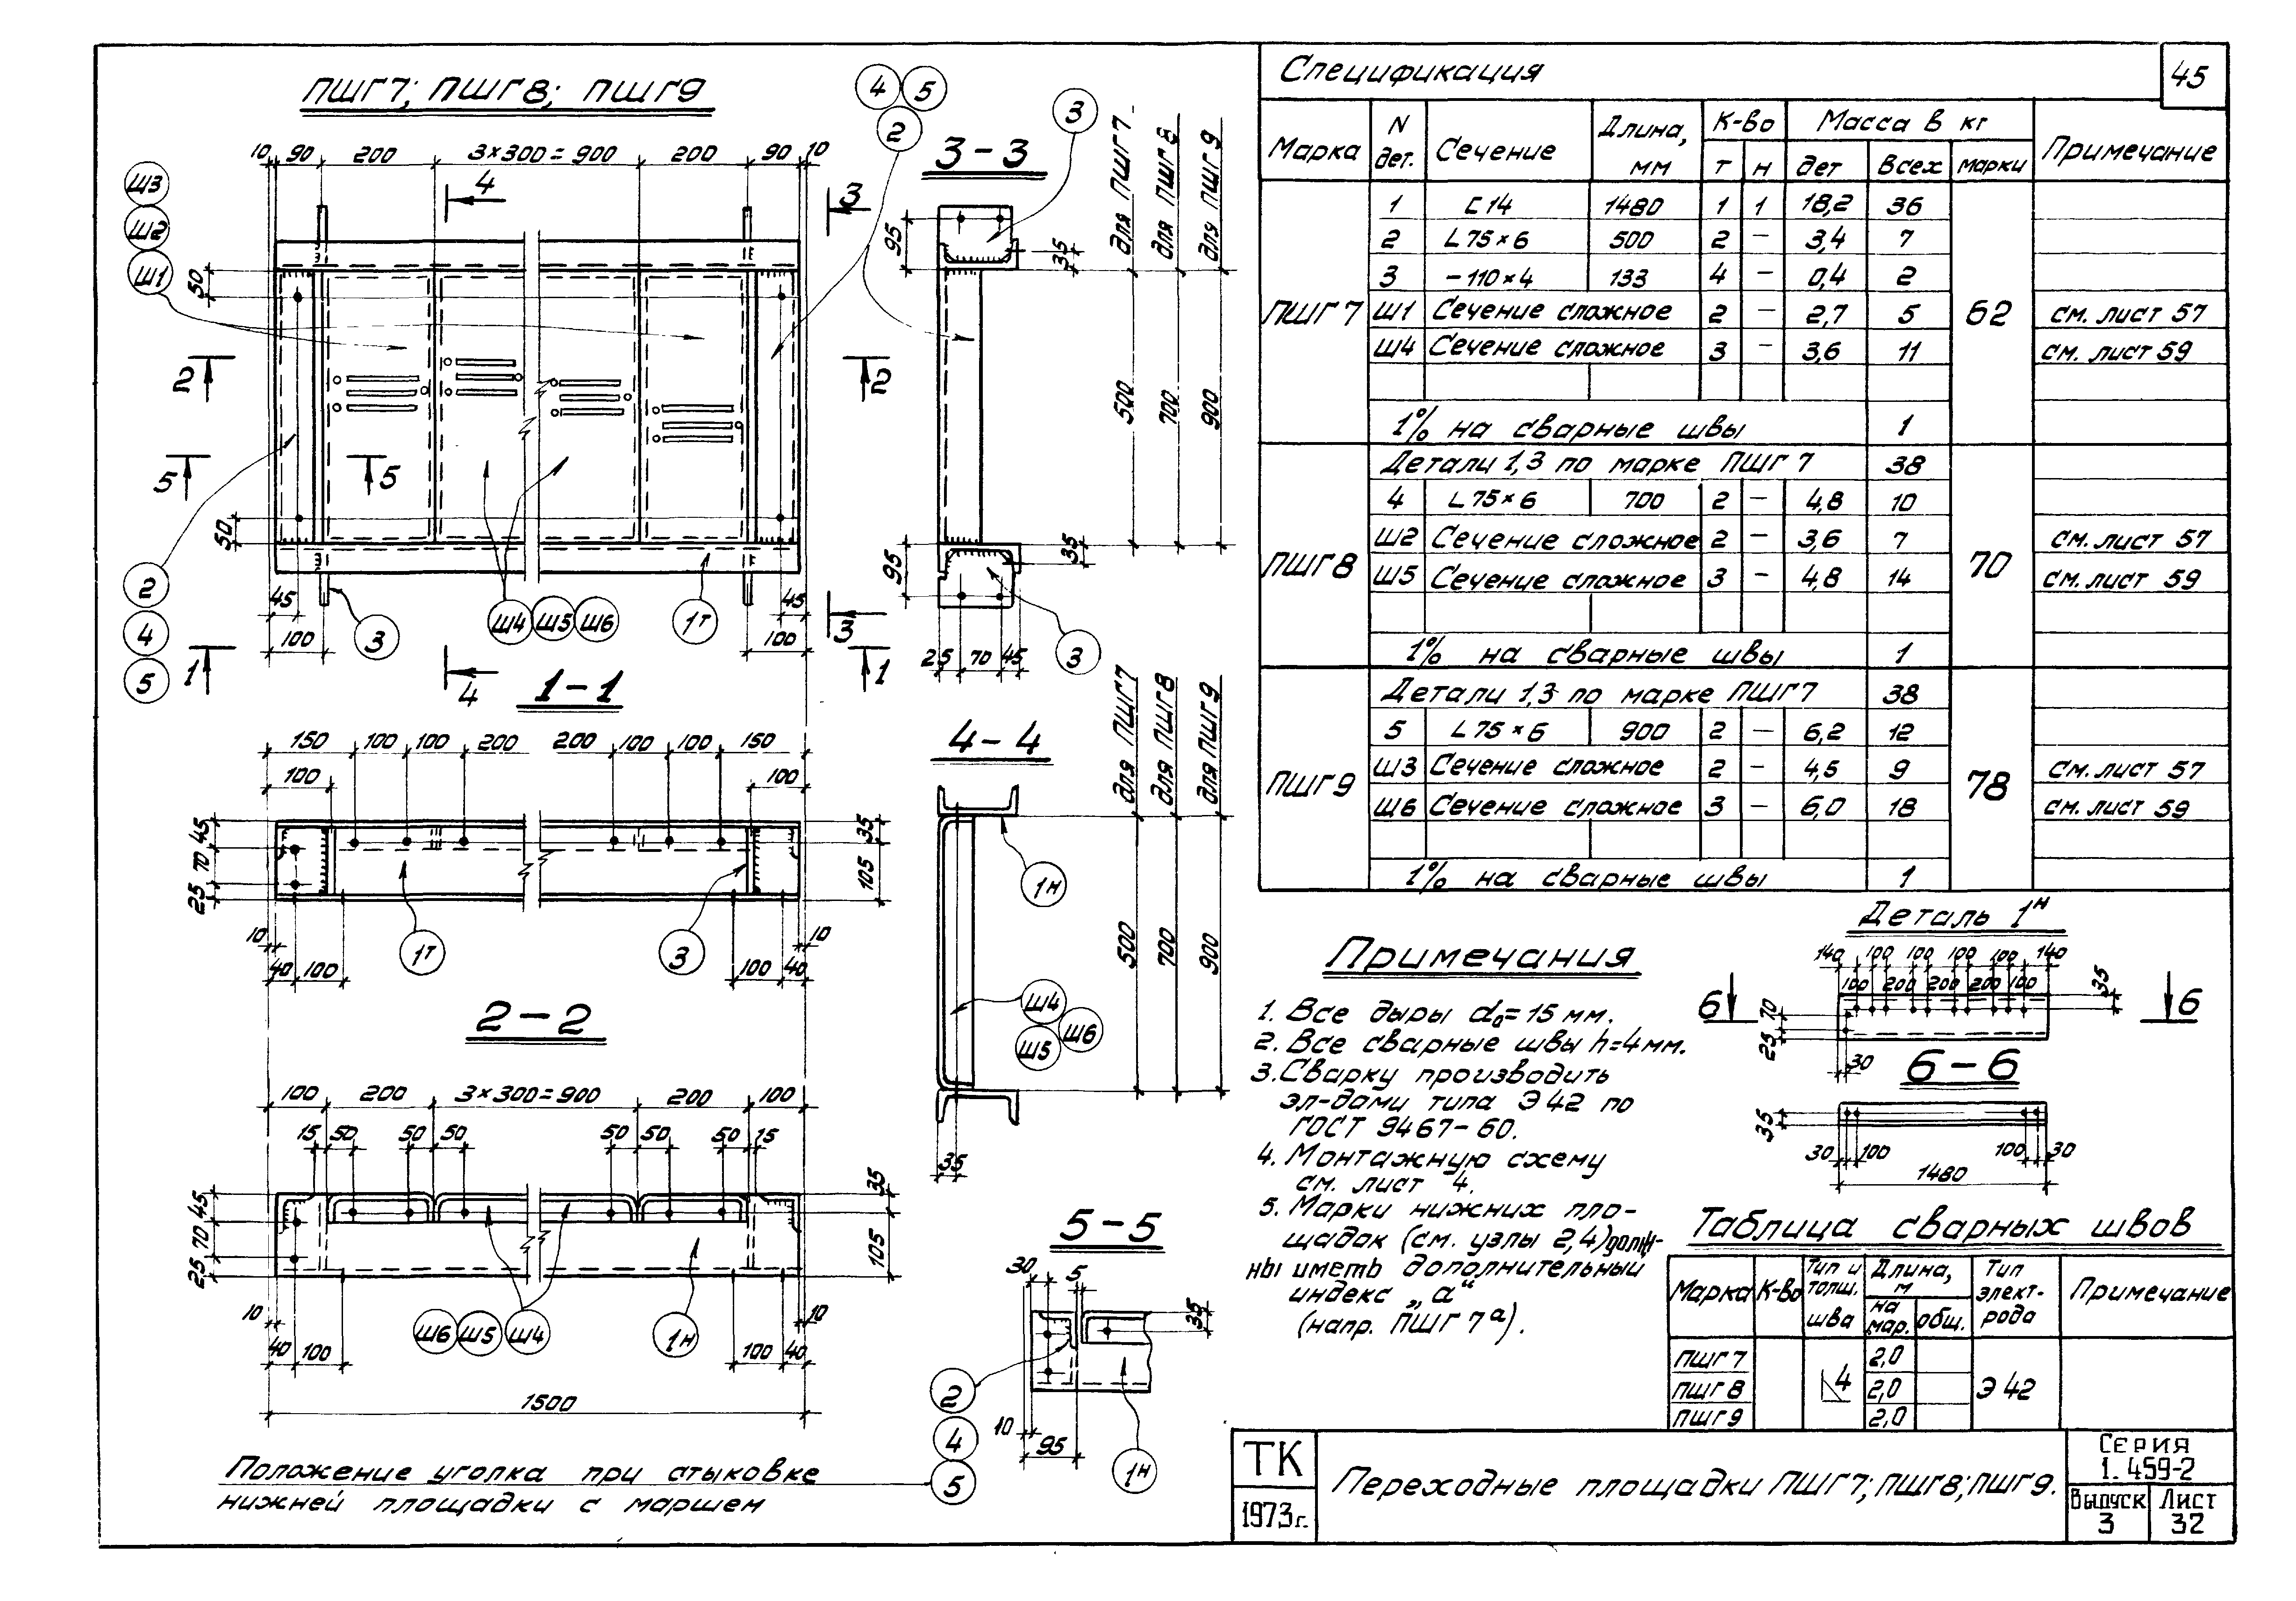 ПШГ7; ПШГ8; ПШГ9
10 90 200 3×300=900 200 90 10
Ш3
Ш2
Ш1
4 3
50
2 2
5 5
50
45 45
100 100
2
4
5
3
Ш4 Ш5 Ш6
1т
3
1 1
4
4 5
2
3-3
3
95 35
для ПШГ7
для ПШГ8
для ПШГ9
500
700
900
95 35
25 70 45
3
1-1
150 100 100 200 200 100 100 150
100 100
45
70
25
35
105
10 10
40 100 100 40
1т
3
4-4
для ПШГ7
для ПШГ8
для ПШГ9
1н
500
700
900
Ш4
Ш5 Ш6
35
2-2
100 200 3×300=900 200 100
15 50 50 50 50 50 50 15
45
70
25
35
105
10 10
40 100 100 40
Ш6 Ш5 Ш4
1н
1500
Положение уголка при стыковке
нижней площадки с маршем
5-5
30 5
35
2
4
5
10
95
1н
Спецификация
45
Марка N дет. Сечение Длина, мм К-во Масса в кг Примечание
т н дет Всех марки
ПШГ7 62
1 [14 1480 1 1 18,2 36
2 L75×6 500 2 - 3,4 7
3 -110×4 133 4 - 0,4 2
Ш1 Сечение сложное 2 - 2,7 5 см. лист 57
Ш4 Сечение сложное 3 - 3,6 11 см. лист 59
1% на сварные швы 1
ПШГ8 70
Детали 1,3 по марке ПШГ7 38
4 L75×6 700 2 - 4,8 10
Ш2 Сечение сложное 2 - 3,6 7 см. лист 57
Ш5 Сечение сложное 3 - 4,8 14 см. лист 59
1% на сварные швы 1
ПШГ9 78
Детали 1,3 по марке ПШГ7 38
5 L75×6 900 2 - 6,2 12
Ш3 Сечение сложное 2 - 4,5 9 см. лист 57
Ш6 Сечение сложное 3 - 6,0 18 см. лист 59
1% на сварные швы 1
Примечания
1. Все дыры d₀=15 мм.
2. Все сварные швы h=4мм.
3. Сварку производить
эл-дами типа Э42 по
ГОСТ 9467-60.
4. Монтажную схему
см. лист 4.
5. Марки нижних пло-
щадок (см. узлы 2,4) долж-
ны иметь дополнительный
индекс „а“
(напр. ПШГ7ᵃ).
Деталь 1н
140 100 100 100 100 140
100 200 200 200 100
35
6 6
70
25
30
6-6
35
30 100 100 30
1480
Таблица сварных швов
Марка К-во Тип и толщ. шва Длина, м Тип элект-рода Примечание
на мар. общ.
ПШГ7 2,0
ПШГ8 4 2,0 Э42
ПШГ9 2,0
ТК
1973г.
Переходные площадки ПШГ7; ПШГ8; ПШГ9.
Серия
1.459-2
Выпуск Лист
3 32